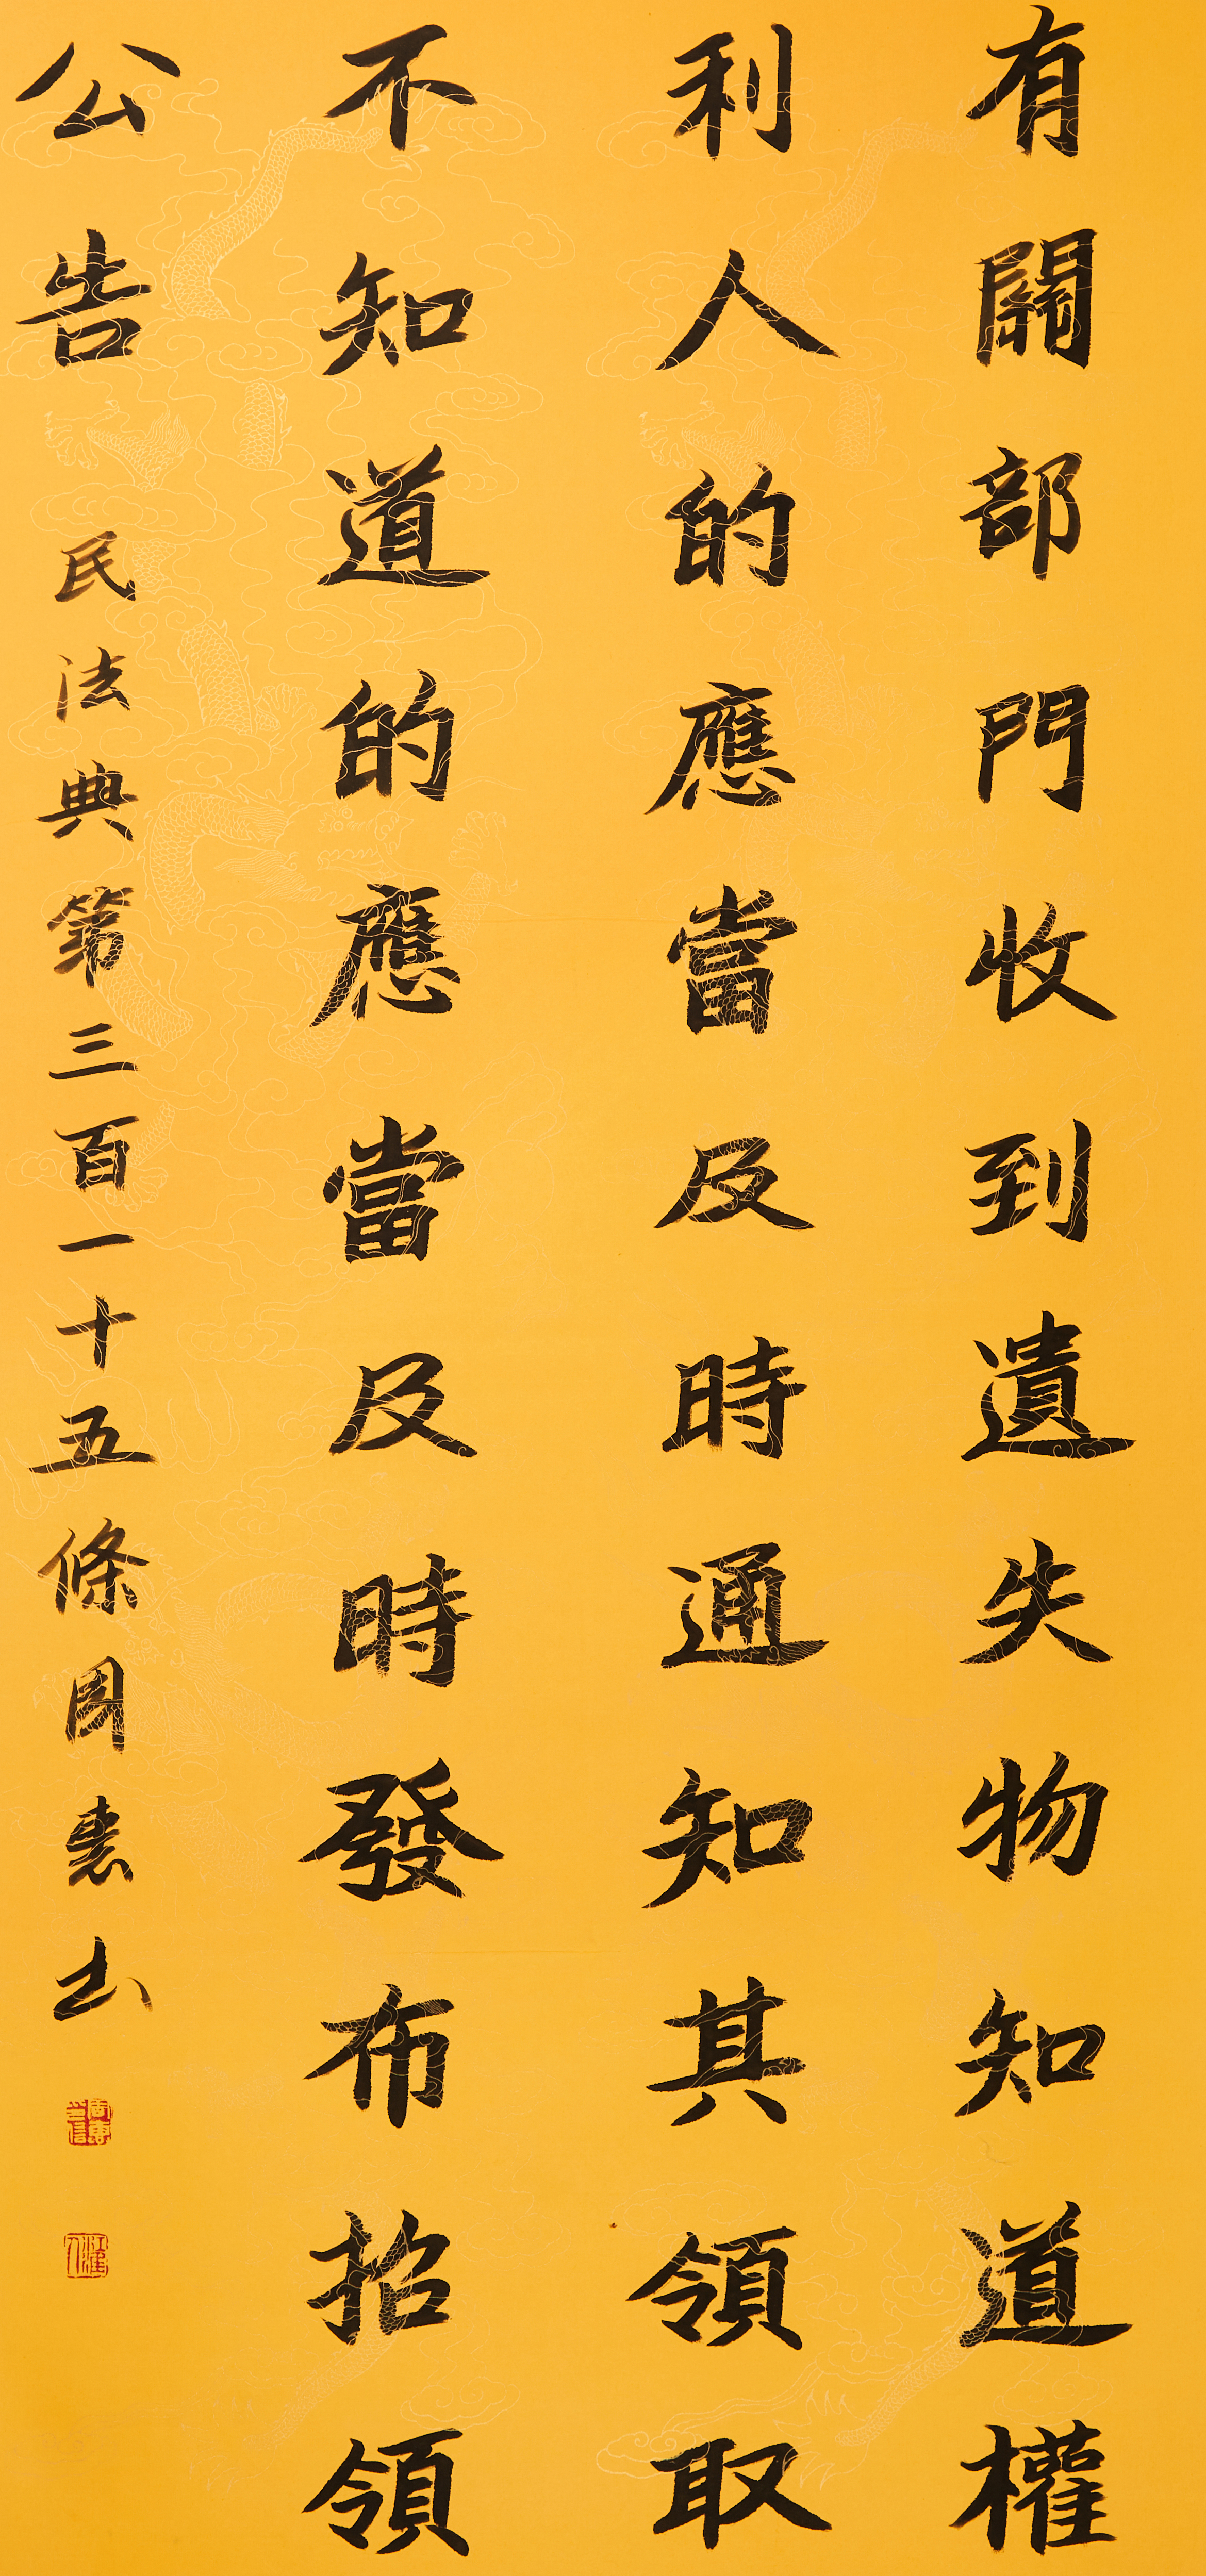 有關部門收到遺失物知道權
利人的應當及時通知其領取
不知道的應當及時發布招領
公告 民法典第三百一十五條 周惠书